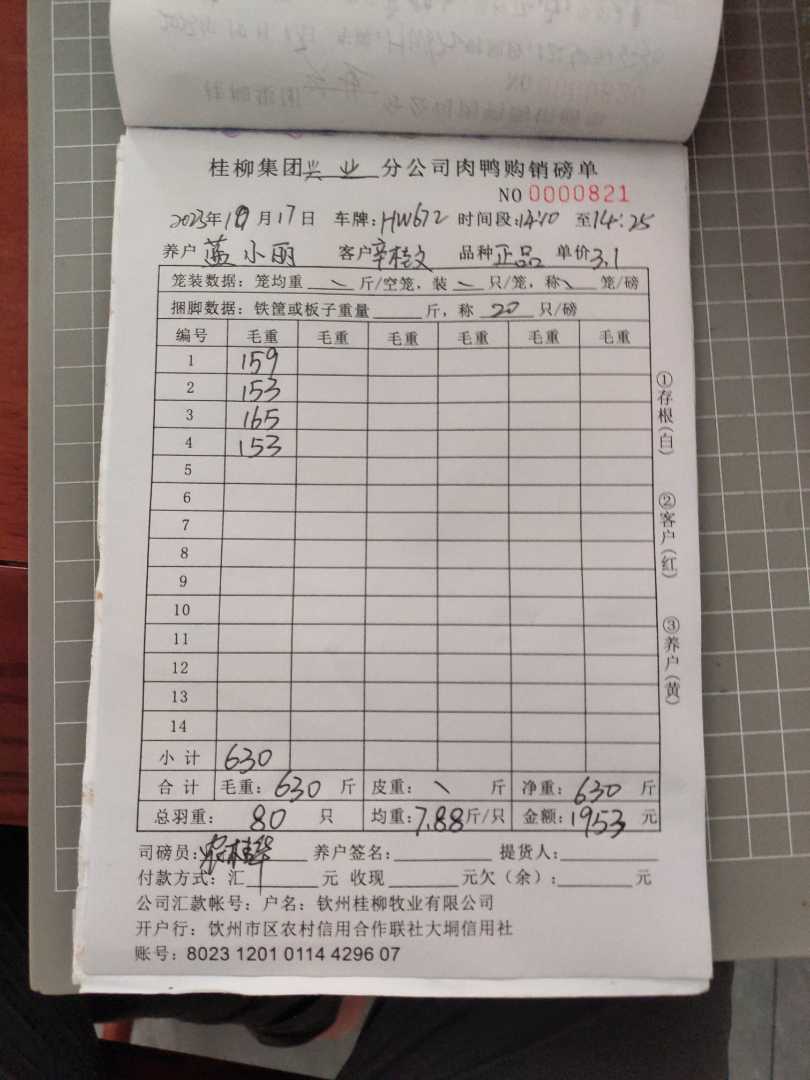 桂柳集团兴业分公司肉鸭购销磅单
NO 0000821
2023年10月17日 车牌:HW672 时间段:14:10 至14:25
养户 蓝小丽 客户 辛桂文 品种 正品 单价3.1
笼装数据:笼均重 \ 斤/空笼,装 \ 只/笼,称 \ 笼/磅
捆脚数据:铁筐或板子重量 斤,称 20 只/磅
编号 毛重 毛重 毛重 毛重 毛重 毛重
1 159
2 153
3 165
4 153
5
6
7
8
9
10
11
12
13
14
小计 630
合计 毛重:630 斤 皮重: \ 斤 净重:630 斤
总羽重: 80 只 均重:7.88斤/只 金额:1953 元
司磅员:农桂华 养户签名: 提货人:
付款方式:汇 元 收现 元欠(余): 元
公司汇款帐号:户名:钦州桂柳牧业有限公司
开户行:钦州市区农村信用合作联社大垌信用社
账号:8023 1201 0114 4296 07
①存根(白)
②客户(红)
③养户(黄)